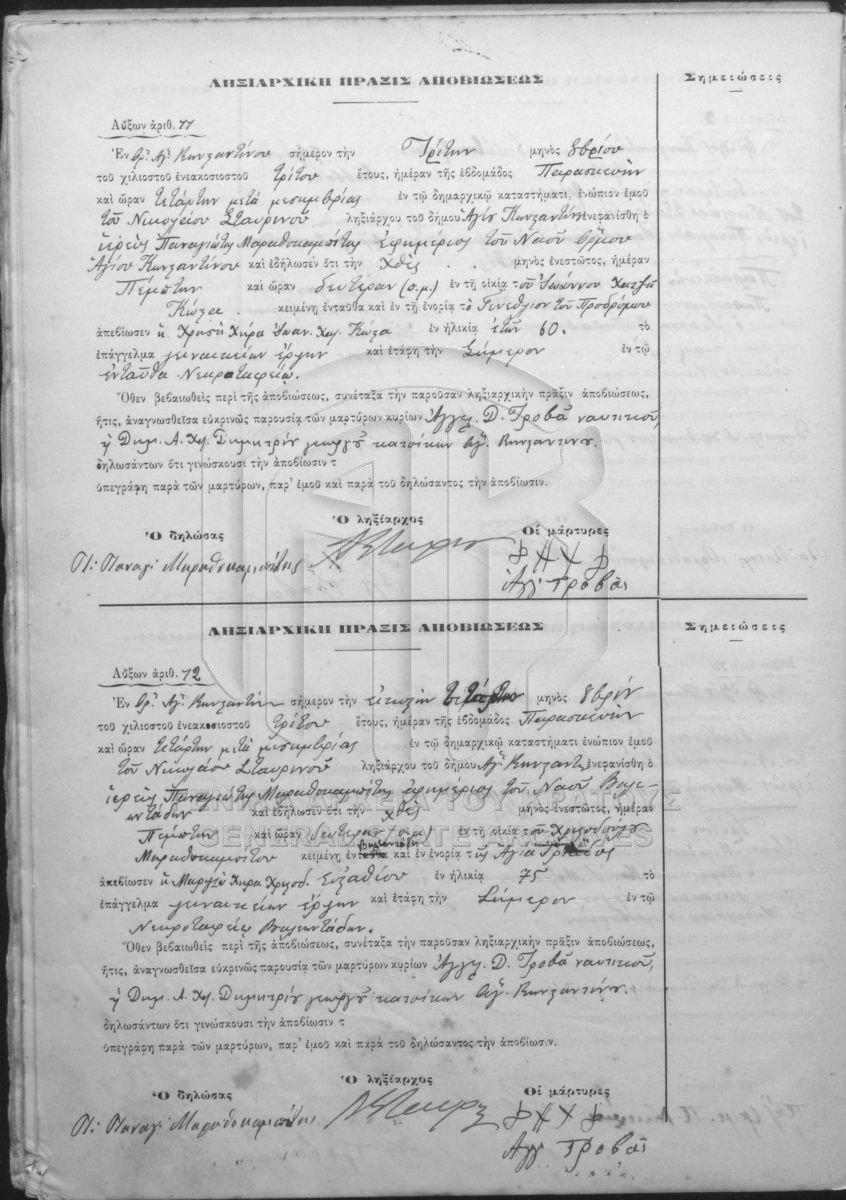 ΛΗΞΙΑΡΧΙΚΗ ΠΡΑΞΙΣ ΑΠΟΒΙΩΣΕΩΣ
Σημειώσεις
Αὔξων ἀριθ. 11
Ἐν Ὅρ. Ἁγ. Κωνσταντίνου σήμερον τὴν Τρίτην μηνὸς 8βρίου
τοῦ χιλιοστοῦ ἐνεακοσιοστοῦ τρίτου ἔτους, ἡμέραν τῆς ἑβδομάδος Παρασκευὴν
καὶ ὥραν τετάρτην μετὰ μεσημβρίας ἐν τῷ δημαρχικῷ καταστήματι, ἐνώπιον ἐμοῦ
τοῦ Νικολάου Σταυρινοῦ ληξιάρχου τοῦ δήμου Ἁγίου Κωνσταντίνου ἐνεφανίσθη ὁ
ἱερεὺς Παναγιώτης Μαραθοκαμπίτης ἐφημέριος τοῦ Ναοῦ Ὅρμου
Ἁγίου Κωνσταντίνου καὶ ἐδήλωσεν ὅτι τὴν χθὲς μηνὸς ἐνεστῶτος, ἡμέραν
Πέμπτην καὶ ὥραν δευτέραν (π.μ.) ἐν τῇ οἰκίᾳ τοῦ Ἰωάννου Χατζῆ
Κώζα κειμένῃ ἐνταῦθα καὶ ἐν τῇ ἐνορίᾳ τὸ Γενέθλιον τοῦ Προδρόμου
ἀπεβίωσεν ἡ Χρυσῆ Χήρα Ἰωαν. Χα. Κώζα ἐν ἡλικίᾳ ἐτῶν 60. τὸ
ἐπάγγελμα γυναικείων ἔργων καὶ ἐτάφη τὴν Σήμερον ἐν τῷ
ἐνταῦθα Νεκροταφείῳ.
Ὅθεν βεβαιωθεὶς περὶ τῆς ἀποβιώσεως, συνέταξα τὴν παροῦσαν ληξιαρχικὴν πρᾶξιν ἀποβιώσεως,
ἥτις, ἀναγνωσθεῖσα εὐκρινῶς παρουσίᾳ τῶν μαρτύρων κυρίων Ἀγγελ. Δ. Γροβᾶ ναυτικοῦ,
ἡ Δημ. Α. Χα. Δημητρίου γεωργοῦ κατοίκων Ἁγ. Κωνσταντίνου.
δηλωσάντων ὅτι γινώσκουσι τὴν ἀποβίωσιν τ
ὑπεγράφη παρὰ τῶν μαρτύρων, παρ' ἐμοῦ καὶ παρὰ τοῦ δηλώσαντος τὴν ἀποβίωσιν.
Ὁ δηλώσας
Ὁ ληξίαρχος
Οἱ μάρτυρες
Π: Παναγ: Μαραθοκαμπίτης
Ἀγγ Γροβᾶς
ΛΗΞΙΑΡΧΙΚΗ ΠΡΑΞΙΣ ΑΠΟΒΙΩΣΕΩΣ
Σημειώσεις
Αὔξων ἀριθ. 12
Ἐν Ὅρ. Ἁγ. Κωνσταντίνου σήμερον τὴν μηνὸς 8βρίου
τοῦ χιλιοστοῦ ἐνεακοσιοστοῦ τρίτου ἔτους, ἡμέραν τῆς ἑβδομάδος Παρασκευὴν
καὶ ὥραν τετάρτην μετὰ μεσημβρίας ἐν τῷ δημαρχικῷ καταστήματι ἐνώπιον ἐμοῦ
τοῦ Νικολάου Σταυρινοῦ ληξιάρχου τοῦ δήμου Ἁγ. Κωνσταντ. ἐνεφανίσθη ὁ
ἱερεὺς Παναγιώτης Μαραθοκαμπίτης ἐφημέριος τοῦ Ναοῦ Βαλε-
οντάδων καὶ ἐδήλωσεν ὅτι τὴν χθὲς μηνὸς ἐνεστῶτος, ἡμέραν
ΓΕΝΙΚΑ ΑΡΧΕΙΑ ΤΟΥ ΚΡΑΤΟΥΣ
Πέμπτην καὶ ὥραν δευτέραν (π.μ.) ἐν τῇ οἰκίᾳ τοῦ Χριστοδούλου
GENERAL STATE ARCHIVES
Μαραθοκαμπίτου κειμένῃ ἐνταῦθα καὶ ἐν ἐνορίᾳ τῆς Ἁγία Τριάδος
ἀπεβίωσεν ἡ Μαργιὼ Χήρα Χριστοδ. Εὐσταθίου ἐν ἡλικίᾳ 75 τὸ
ἐπάγγελμα γυναικείων ἔργων καὶ ἐτάφη τὴν Σήμερον ἐν τῷ
Νεκροταφείῳ Βαλεοντάδων.
Ὅθεν βεβαιωθεὶς περὶ τῆς ἀποβιώσεως, συνέταξα τὴν παροῦσαν ληξιαρχικὴν πρᾶξιν ἀποβιώσεως,
ἥτις, ἀναγνωσθεῖσα εὐκρινῶς παρουσίᾳ τῶν μαρτύρων κυρίων Ἀγγελ. Δ. Γροβᾶ ναυτικοῦ,
ἡ Δημ. Α. Χα. Δημητρίου γεωργοῦ κατοίκων Ἁγ. Κωνσταντίνου.
δηλωσάντων ὅτι γινώσκουσι τὴν ἀποβίωσιν τ
ὑπεγράφη παρὰ τῶν μαρτύρων, παρ' ἐμοῦ καὶ παρὰ τοῦ δηλώσαντος τὴν ἀποβίωσιν.
Ὁ δηλώσας
Ὁ ληξίαρχος
Οἱ μάρτυρες
Π: Παναγ: Μαραθοκαμπίτης
Ἀγγ Γροβᾶς